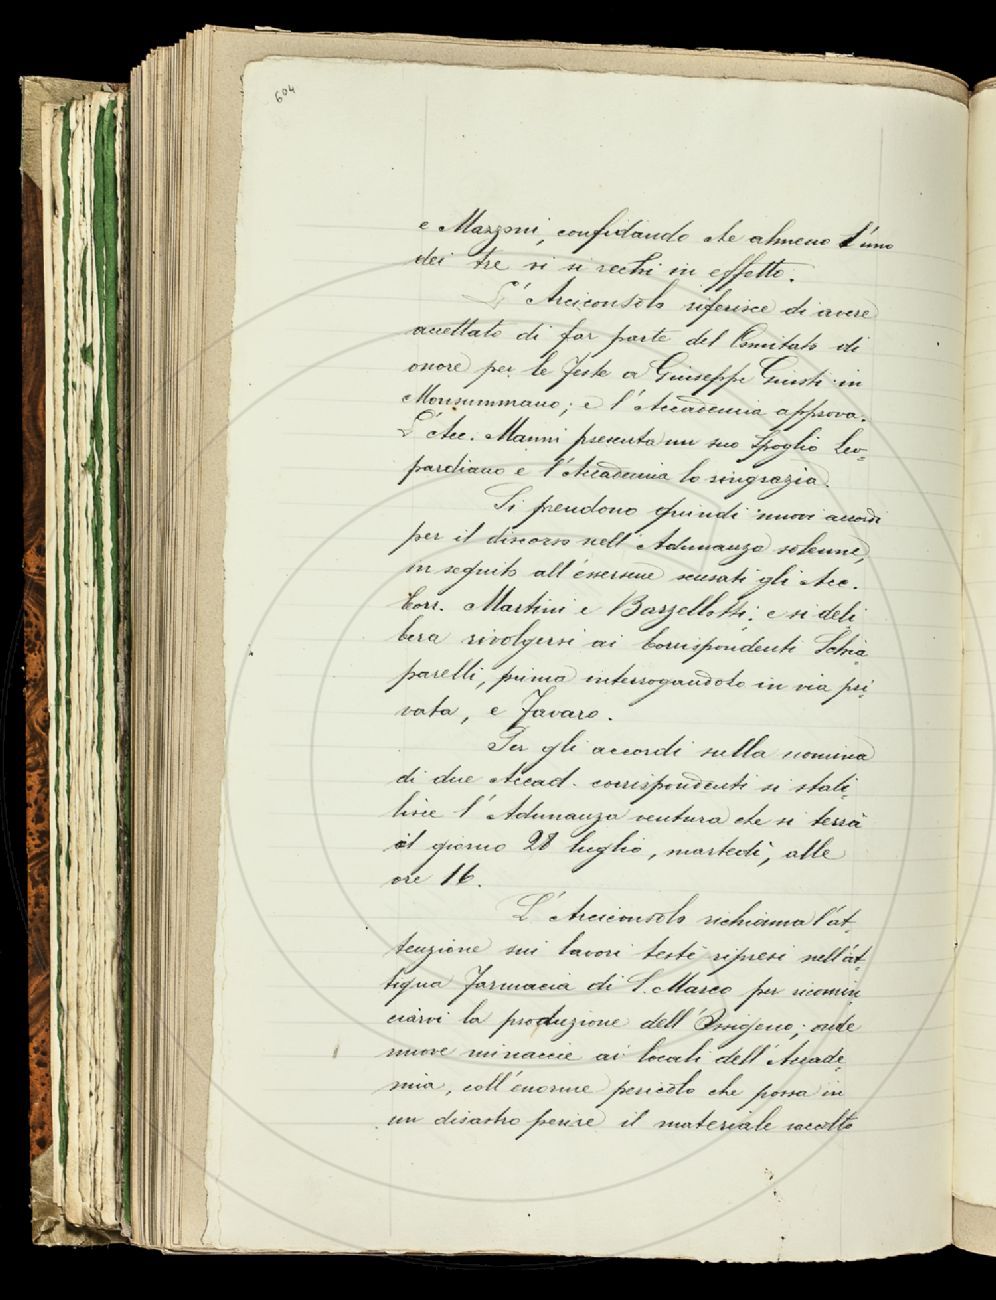 604
e Mazzoni, confidando che almeno l'uno
dei tre vi si rechi in effetto.
L'Arciconsolo riferisce di avere
accettato di far parte del Comitato di
onore per le feste a Giuseppe Giusti in
Monsummano; e l'Accademia approva.
L'Acc. Manni presenta un suo Spoglio Leo-
pardiano e l'Accademia lo ringrazia.
Si prendono quindi nuovi accordi
per il discorso nell'Adunanza solenne,
in seguito all'essersene scusati gli Acc.
Corr. Martini e Barzellotti: e si deli-
bera rivolgersi ai Corrispondenti Schia-
parelli, prima interrogandolo in via pri-
vata, e Favaro.
Per gli accordi sulla nomina
di due Accad. corrispondenti si stabi-
lisce l'Adunanza ventura che si terrà
il giorno 28 luglio, martedì, alle
ore 16.
L'Arciconsolo richiama l'at-
tenzione sui lavori testè ripresi nell'at-
tigua Farmacia di S. Marco per ricomin-
ciarvi la produzione dell'Ossigeno; onde
nuove minaccie ai locali dell'Accade-
mia, coll'enorme pericolo che possa in
un disastro perire il materiale raccolto